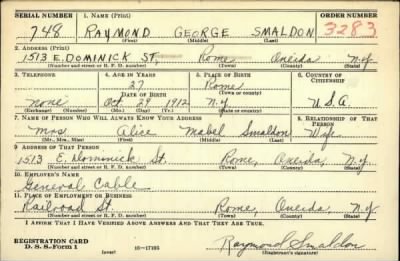 SERIAL NUMBER 1. NAME (Print) ORDER NUMBER
748 RAYMOND GEORGE SMALDON 3283
(First) (Middle) (Last)
2. ADDRESS (Print)
1513 E. DOMINICK ST. Rome, Oneida N.Y.
(Number and street or R. F. D. number) (Town) (County) (State)
3. TELEPHONE 4. AGE IN YEARS 5. PLACE OF BIRTH 6. COUNTRY OF CITIZENSHIP
27 Rome
DATE OF BIRTH (Town or county)
none Oct. 29 1912 N.Y. U.S.A.
(Exchange) (Number) (Mo.) (Day) (Yr.) (State or country)
7. NAME OF PERSON WHO WILL ALWAYS KNOW YOUR ADDRESS 8. RELATIONSHIP OF THAT PERSON
Mrs Alice Mabel Smaldon Wife
(Mr., Mrs., Miss) (First) (Middle) (Last)
9. ADDRESS OF THAT PERSON
1513 E. Dominick St. Rome, Oneida, N.Y.
(Number and street or R. F. D. number) (Town) (County) (State)
10. EMPLOYER'S NAME
General Cable
11. PLACE OF EMPLOYMENT OR BUSINESS
Railroad St. Rome, Oneida, N.Y.
(Number and street or R. F. D. number) (Town) (County) (State)
I AFFIRM THAT I HAVE VERIFIED ABOVE ANSWERS AND THAT THEY ARE TRUE.
REGISTRATION CARD
D. S. S.—Form 1 (over) 16—17105 Raymond Smaldon
(Registrant's signature)